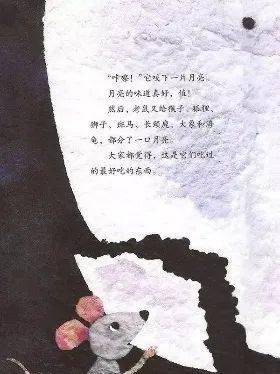 “咔嚓！”它咬下一片月亮。
月亮的味道真好，值！
然后，老鼠又给猴子、狐狸、
狮子、斑马、长颈鹿、大象和海
龟，都分了一口月亮。
大家都觉得，这是它们吃过
的最好吃的东西。